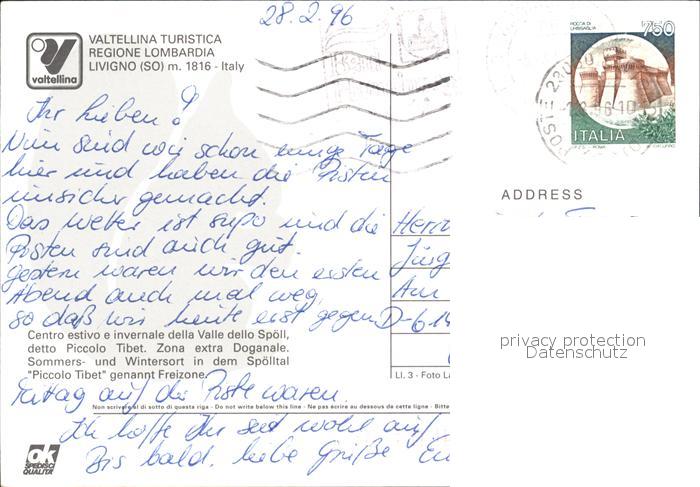 28.2.96
VALTELLINA TURISTICA
REGIONE LOMBARDIA
LIVIGNO (SO) m. 1816 - Italy
valtellina
ROCCA DI
URBISAGLIA
750
ITALIA
POSTE
ADDRESS
Ihr lieben!
Nun sind wir schon einige Tage
hier und haben die Pisten
unsicher gemacht.
Das Wetter ist supo und die
Pisten sind auch gut.
gestern waren wir den ersten
Abend auch mal weg,
so daß wir heute erst gegen
Herrn
Jürg
Am
D-614
Centro estivo e invernale della Valle dello Spöll,
detto Piccolo Tibet. Zona extra Doganale.
Sommers- und Wintersort in dem Spölltal
"Piccolo Tibet" genannt Freizone.
Ll. 3 - Foto La
privacy protection
Datenschutz
auf der Piste waren.
Non scrivere al di sotto di questa riga - Do not write below this line - Ne pas écrire au dessous de cette ligne - Bitte
Ich hoffe Ihr seit wohl auf
Bis bald. liebe Grüße Eu
ok
SPEDISCI
QUALITA'